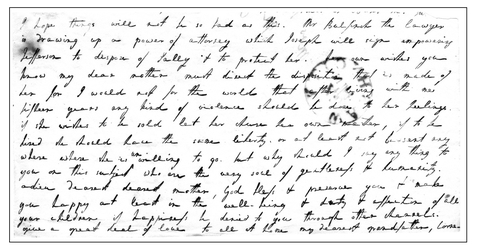 I hope things will not be so bad as this. Mr Bulfinch the lawyer
is drawing up a power of attorney which Joseph will sign empowering
Jefferson to dispose of Sally & to protect her. her own wishes you
know my dear mother must direct the disposition that is made of
her for I would not for the world that after living with me
fifteen years any kind of violence should be done to her feelings.
if she wishes to be sold let her choose her own master, if to be
hired she should have the same liberty, or at least not be sent any
where where she is unwilling to go. but why should I say any thing to
you on this subject who are the very soul of gentleness & humanity.
adieu dearest dearest mother, God bless & preserve you & make
you happy at least in the well-being & duty & affection of all
your children, if happiness be denied to you through other channels.
give a great deal of love to all at home my dearest grandfather,